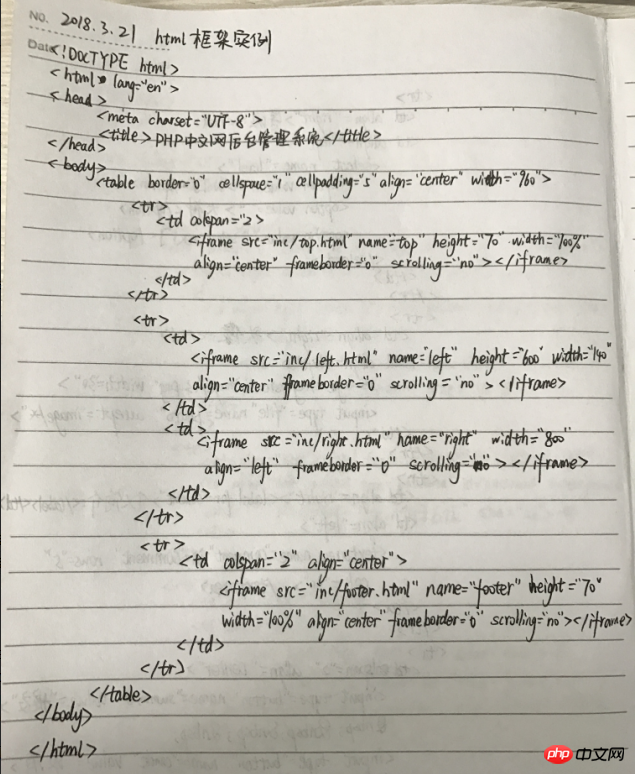 No. 2018.3.21 html 框架实例
Date <!DOCTYPE html>
<html lang="en">
<head>
<meta charset="UTF-8">
<title>PHP中文网后台管理系统</title>
</head>
<body>
<table border="0" cellspace="1" cellpadding="5" align="center" width="960">
<tr>
<td colspan="2>
<iframe src="inc/top.html" name="top" height="70" width="100%"
align="center" frameborder="0" scrolling="no"></iframe>
</td>
</tr>
<tr>
<td>
<iframe src="inc/left.html" name="left" height="600" width="140"
align="center" frameborder="0" scrolling="no"></iframe>
</td>
<td>
<iframe src="inc/right.html" name="right" width="800"
align="left" frameborder="0" scrolling="no"></iframe>
</td>
</tr>
<tr>
<td colspan="2" align="center">
<iframe src="inc/footer.html" name="footer" height="70"
width="100%" align="center" frameborder="0" scrolling="no"></iframe>
</td>
</tr>
</table>
</body>
</html>
php 中文网